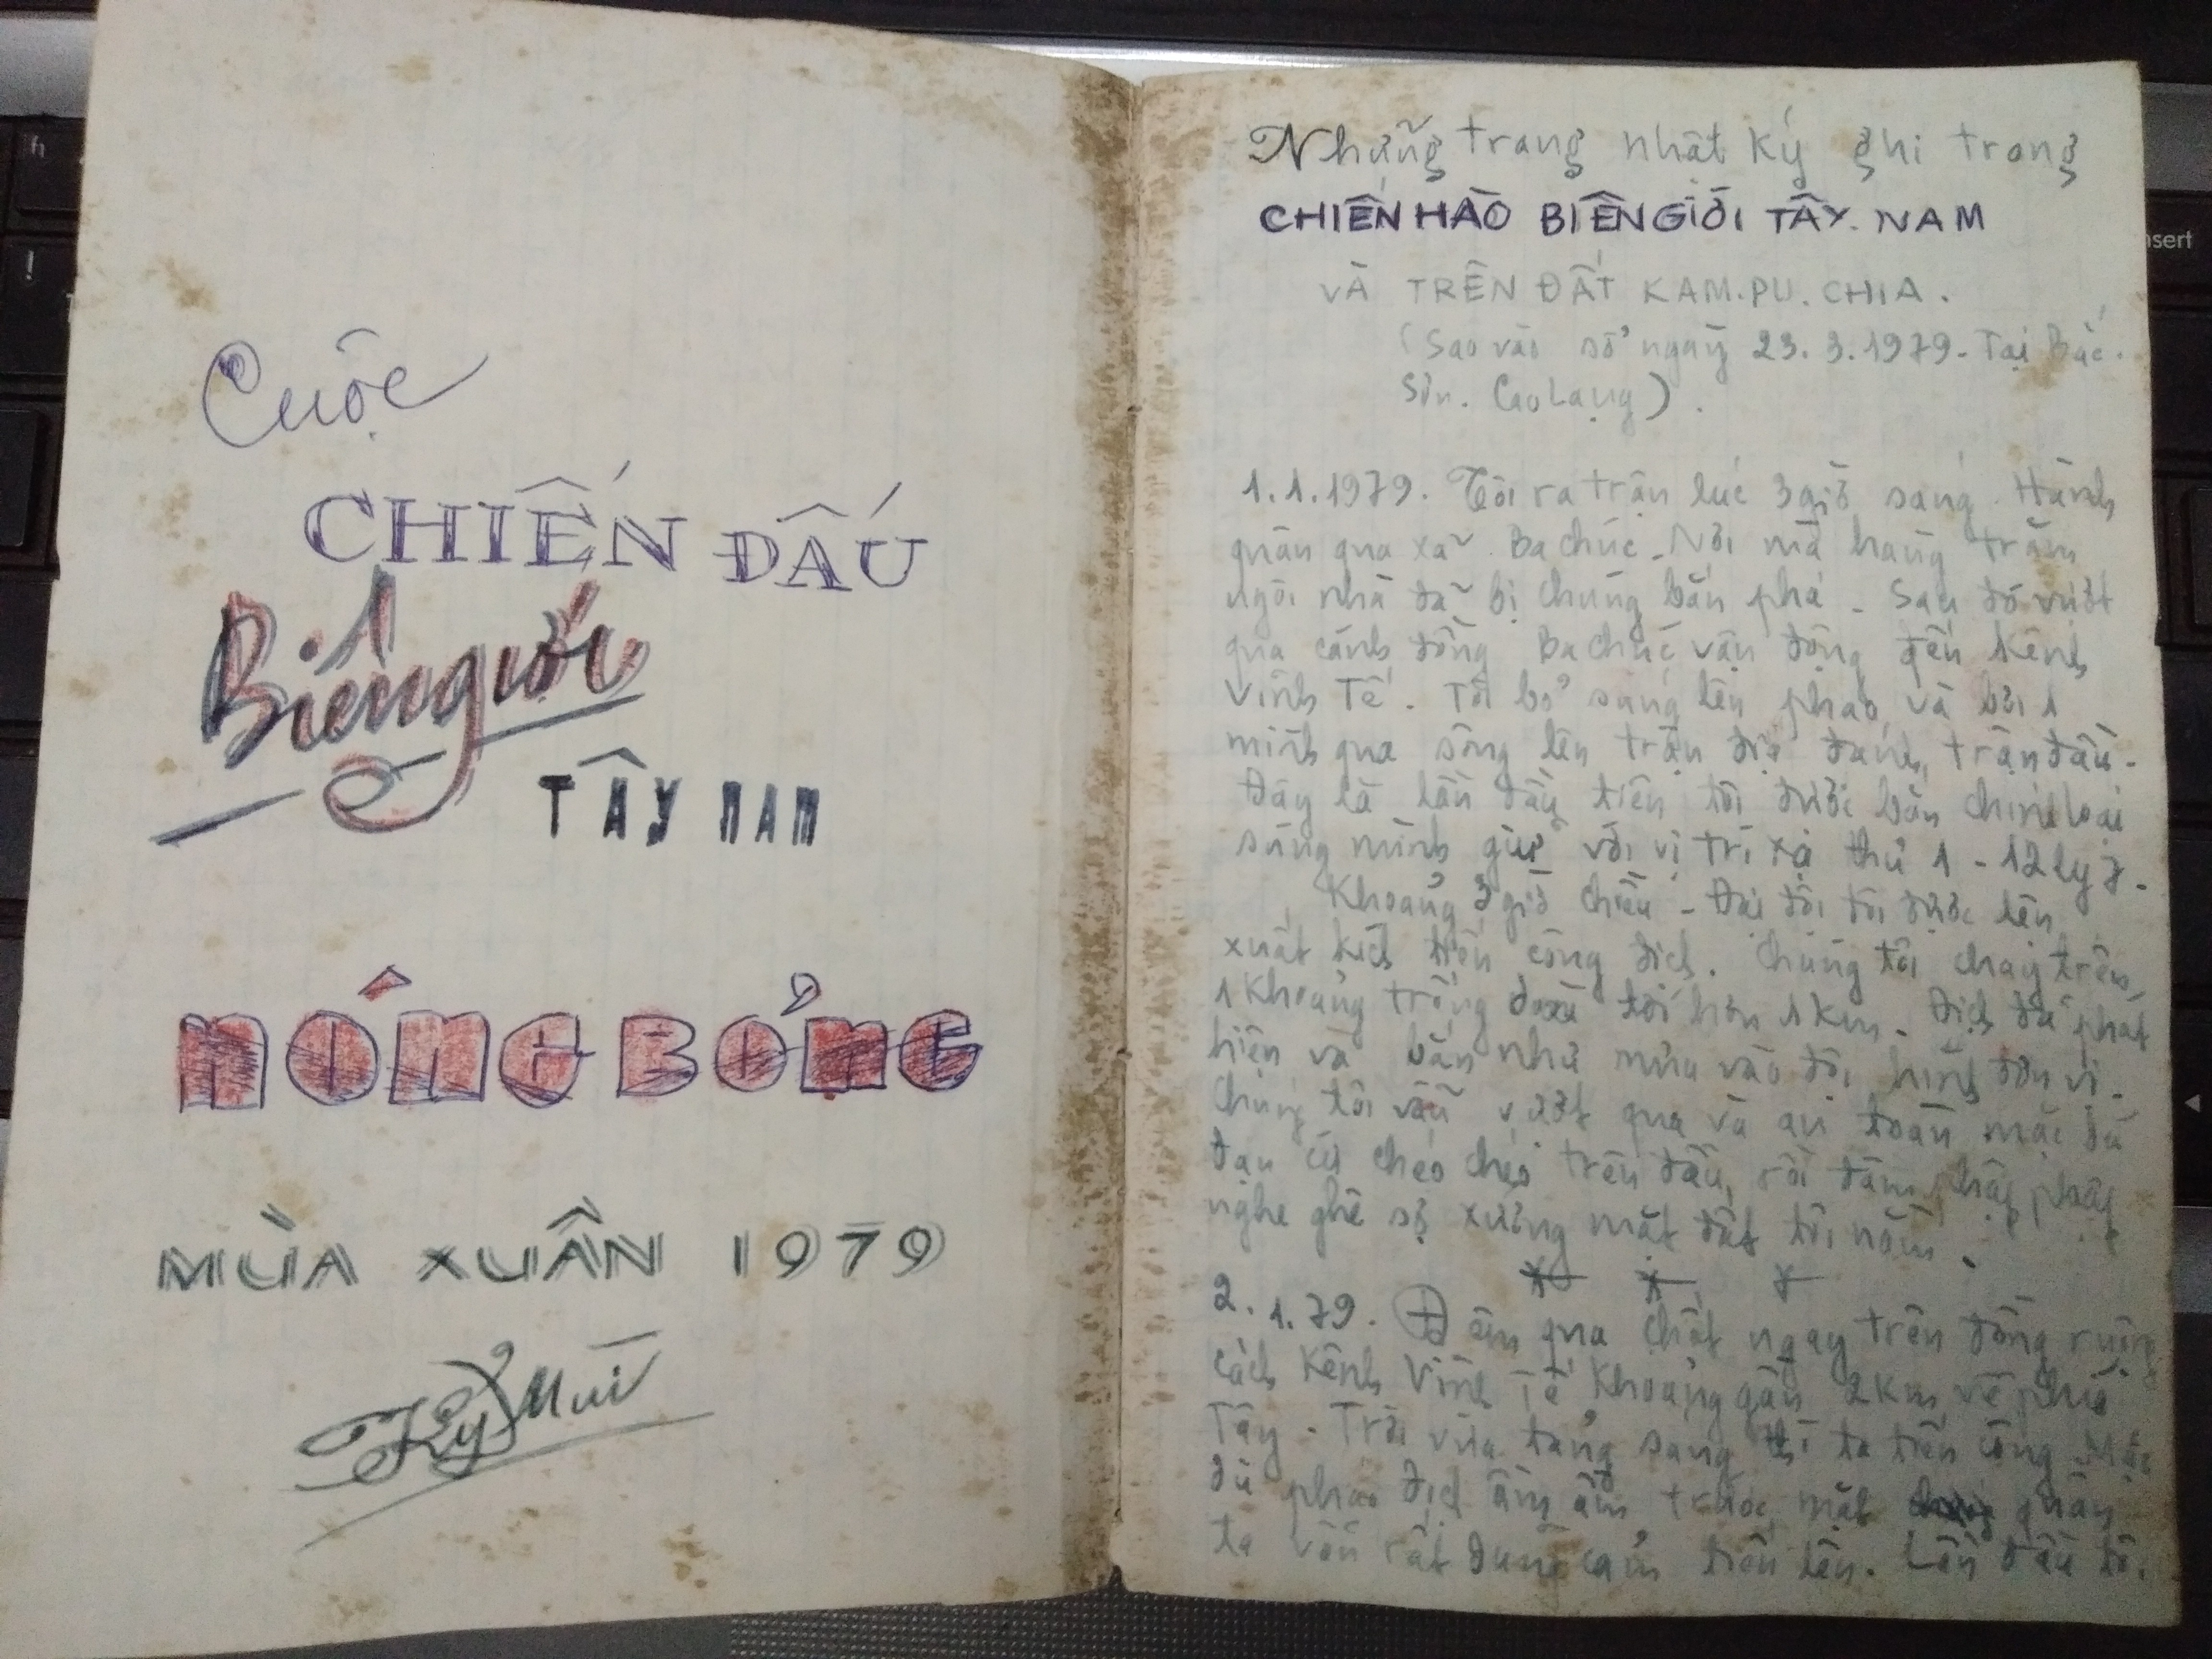 Cuộc
CHIẾN ĐẤU
Biên giới
TÂY NAM
NÓNG BỎNG
MÙA XUÂN 1979
Kỷ Mùi
Những trang nhật ký ghi trong
CHIẾN HÀO BIÊN GIỚI TÂY. NAM
VÀ TRÊN ĐẤT KAM.PU.CHIA.
(Sao vào sổ ngày 23.3.1979. Tại Bắc.
Sơn. Cao Lạng).
1.1.1979. Tôi ra trận lúc 3 giờ sáng. Hành
quân qua xã Ba chúc. Nơi mà hàng trăm
ngôi nhà đã bị chúng bắn phá. Sau đó vượt
qua cánh đồng Ba chúc vận động đến kênh
Vĩnh Tế. Tôi bỏ súng lên phao và bơi 1
mình qua sông lên trận địa đánh trận đầu.
Đây là lần đầu tiên tôi được bắn chính loại
súng mình giữ với vị trí xạ thủ 1 - 12 ly 7.
Khoảng 3 giờ chiều - Đại đội tôi được lên
xuất kích tiến công địch. Chúng tôi chạy trên
1 khoảng trống tới hơn 1 km. Địch đã phát
hiện và bắn như mưa vào đội hình đơn vị.
Chúng tôi vẫn vượt qua và an toàn mặc dù
đạn cứ chéo chéo trên đầu, rồi đâm phầm phập
nghe ghê sợ xuống mặt đất tôi nằm.
2.1.79. Đêm qua chốt ngay trên đồng ruộng
cách kênh Vĩnh Tế khoảng gần 2 km về phía
Tây. Trời vừa tảng sáng thì ta tiến công. Mặc
dù pháo địch ầm ầm trước mặt quân
ta vẫn rất dũng cảm tiến lên. Lần đầu tôi